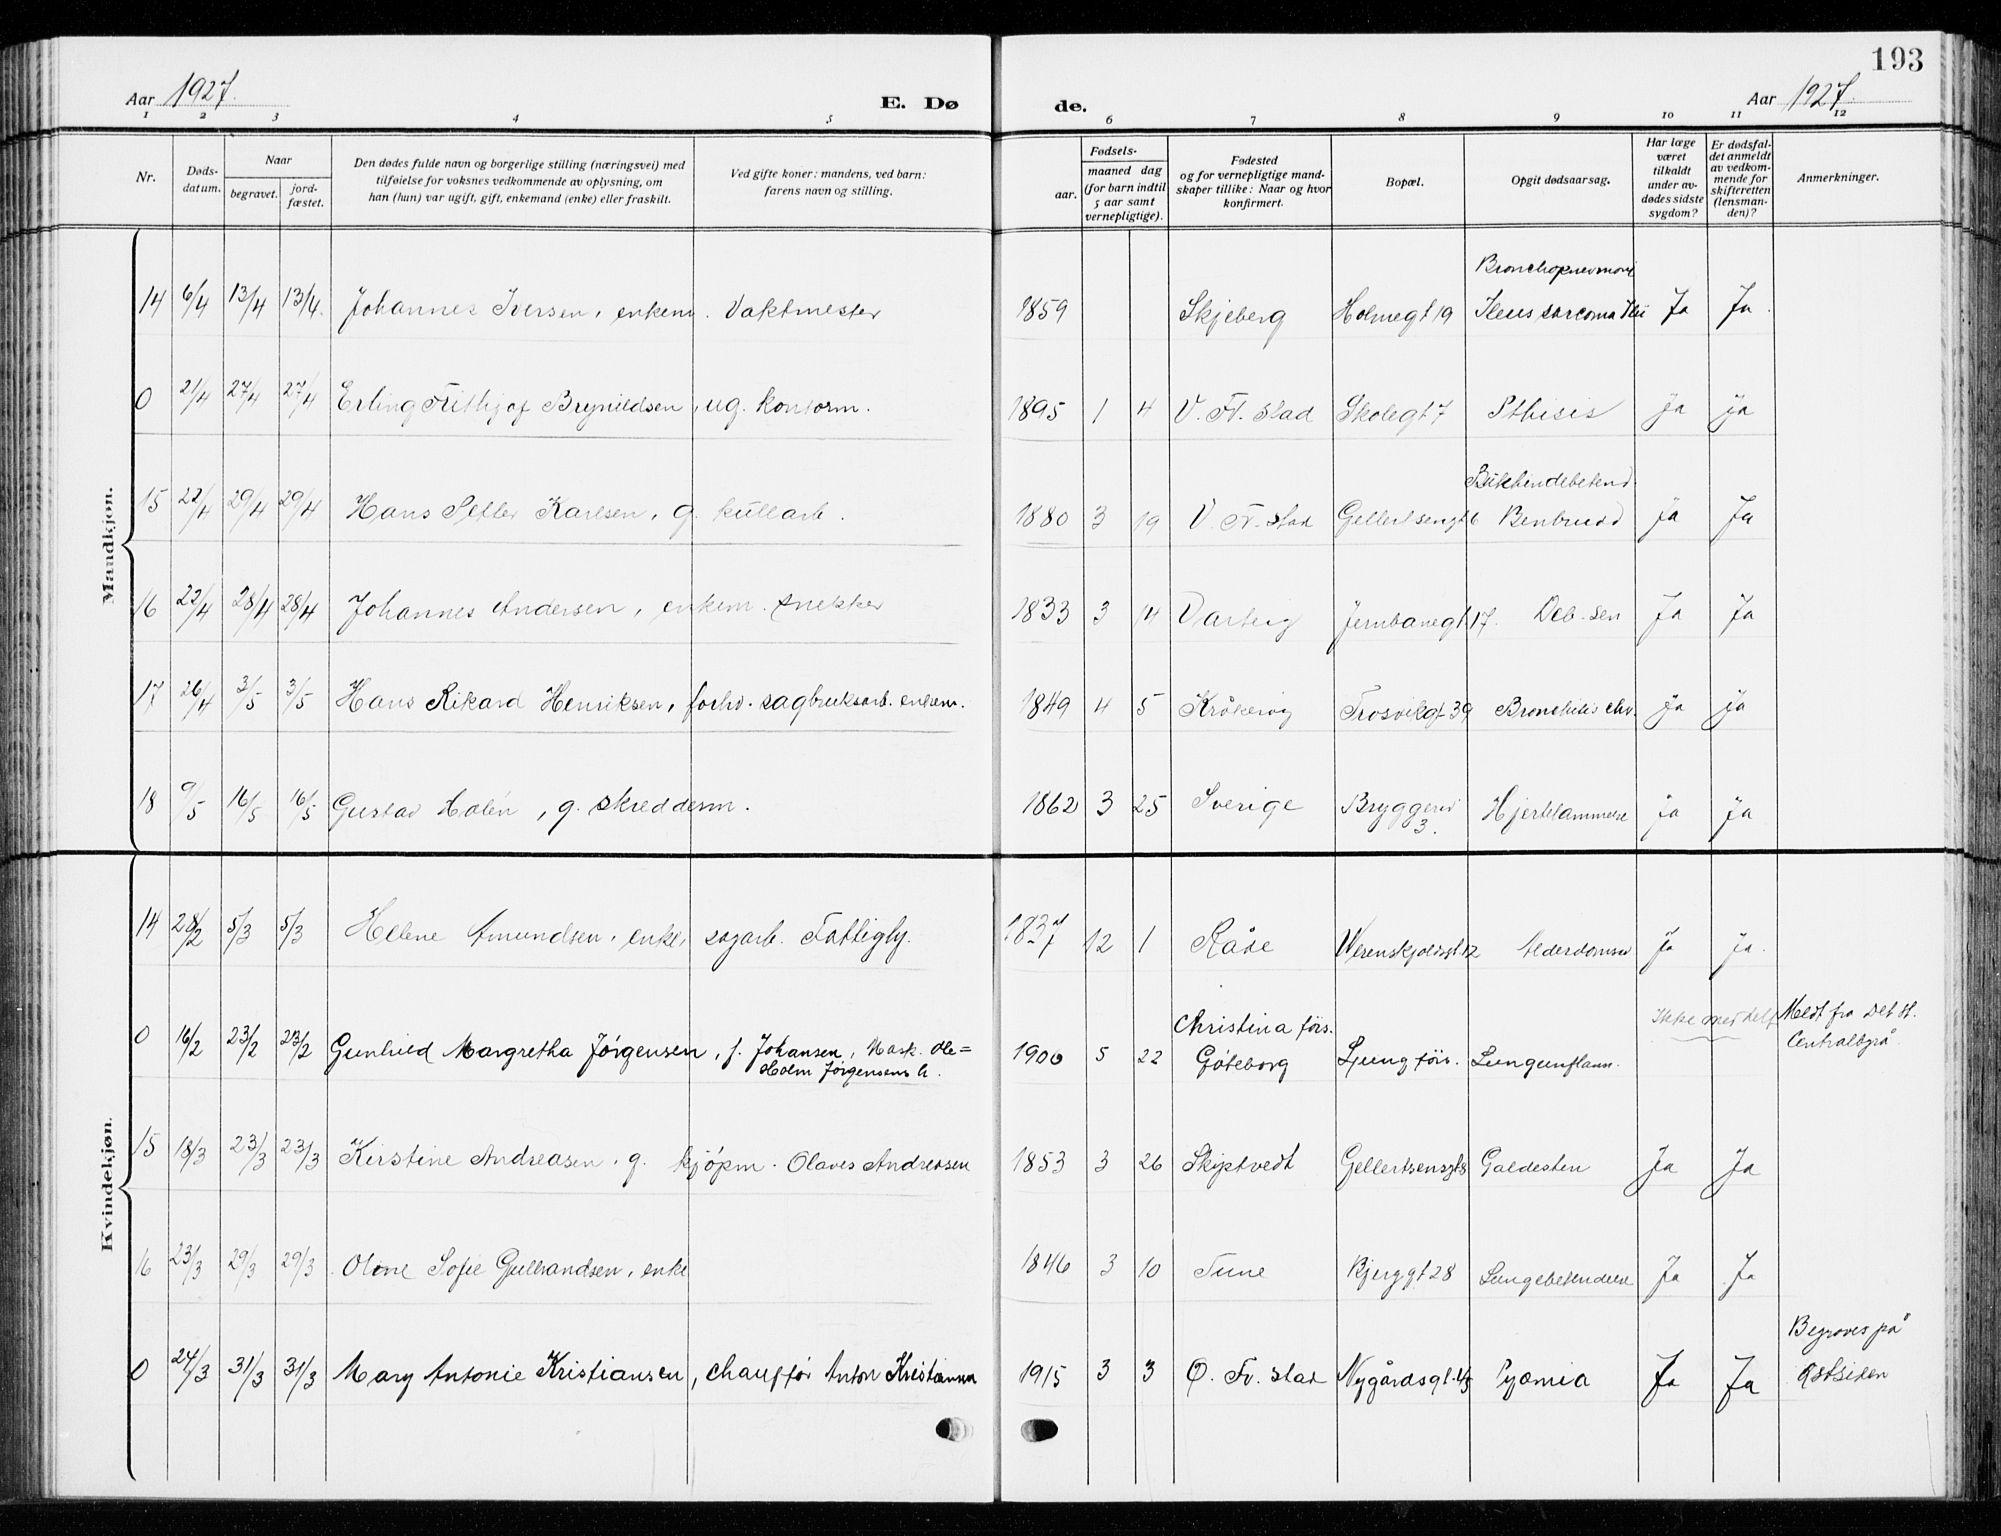 193
Aar 1927.
E. Dø
de.
Aar 1927.
1 2 3 4 5 6 7 8 9 10 11 12
Nr.
Døds-
datum.
Naar
begravet.
jord-
fæstet.
Den dødes fulde navn og borgerlige stilling (næringsvei) med
tilføielse for voksnes vedkommende av oplysning, om
han (hun) var ugift, gift, enkemand (enke) eller fraskilt.
Ved gifte koner: mandens, ved barn:
farens navn og stilling.
Fødsels-
aar.
maaned dag
(for barn indtil
5 aar samt
vernepligtige).
Fødested
og for vernepligtige mand-
skaper tillike: Naar og hvor
konfirmert.
Bopæl.
Opgit dødsaarsag.
Har læge
været
tilkaldt
under av-
dødes sidste
sygdom?
Er dødsfal-
det anmeldt
av vedkom-
mende for
skifteretten
(lensman-
den)?
Anmerkninger.
Mandkjøn.
Bronchopnevmoni
14 6/4 13/4 13/4. Johannes Iversen, enkem. Vaktmester 1859 Skjeberg Holmegt 19 Ileus sarcoma Ilii Ja Ja.
0 21/4 27/4 27/4 Erling Frithjof Brynildsen, ug. kontorm. 1895 1 4 V. Fr. stad Skolegt 7 Pthisis Ja Ja
Bukhindebetend.
15 22/4 29/4 29/4 Hans Petter Karlsen, g. kullarb. 1880 3 19 V. Fr. stad Gellertsengt 6 Benbrudd Ja Ja
16 22/4 28/4 28/4 Johannes Andersen, enkem. snekker 1833 3 14 Varteig Jernbanegt. 17. Deb. sen Ja Ja
17 26/4 3/5 3/5 Hans Rikard Henriksen, forhv. sagbruksarb. enkem. 1849 4 5 Kråkerøy Trosvikgt 39 Bronchitis chr. Ja Ja
18 9/5 16/5 16/5 Gustav Holén, g. skredderm. 1862 3 25 Sverige Bryggeriv Hjertelammelse Ja Ja
3.
Kvindekjøn.
14 28/2 5/3 5/3 Helene Amundsen, enke, sagarb. Fattigly. 1837 12 1 Råde Werenskjoldsgt. 12 Alderdomsv Ja Ja.
Christina förs. Ikke meddelt Meldt fra Det st.
0 16/2 23/2 23/2 Gunhild Margretha Jørgensen, f. Johansen, Mask. Ole= 1900 5 22 Göteborg Ljung förs. Lungenflamm. Centralbyrå.
Holm Jørgensens h.
15 18/3 23/3 23/3 Kirstine Andreasen, g. kjøpm. Olaves Andreasen 1853 3 26 Skiptvedt Gellertsensgt 8 Galdesten Ja Ja
16 23/3 29/3 29/3 Oline Sofie Gulbrandsen, enke 1846 3 10 Tune Bjerggt 28 Lungebetendelse Ja Ja
Begraves på
0 24/3 31/3 31/3 Mary Antonie Kristiansen, chauffør Anton Kristiansen 1915 3 3 Ø. Fr. stad Nygårdsgt. Pyæmia Ja Ja Østsiden